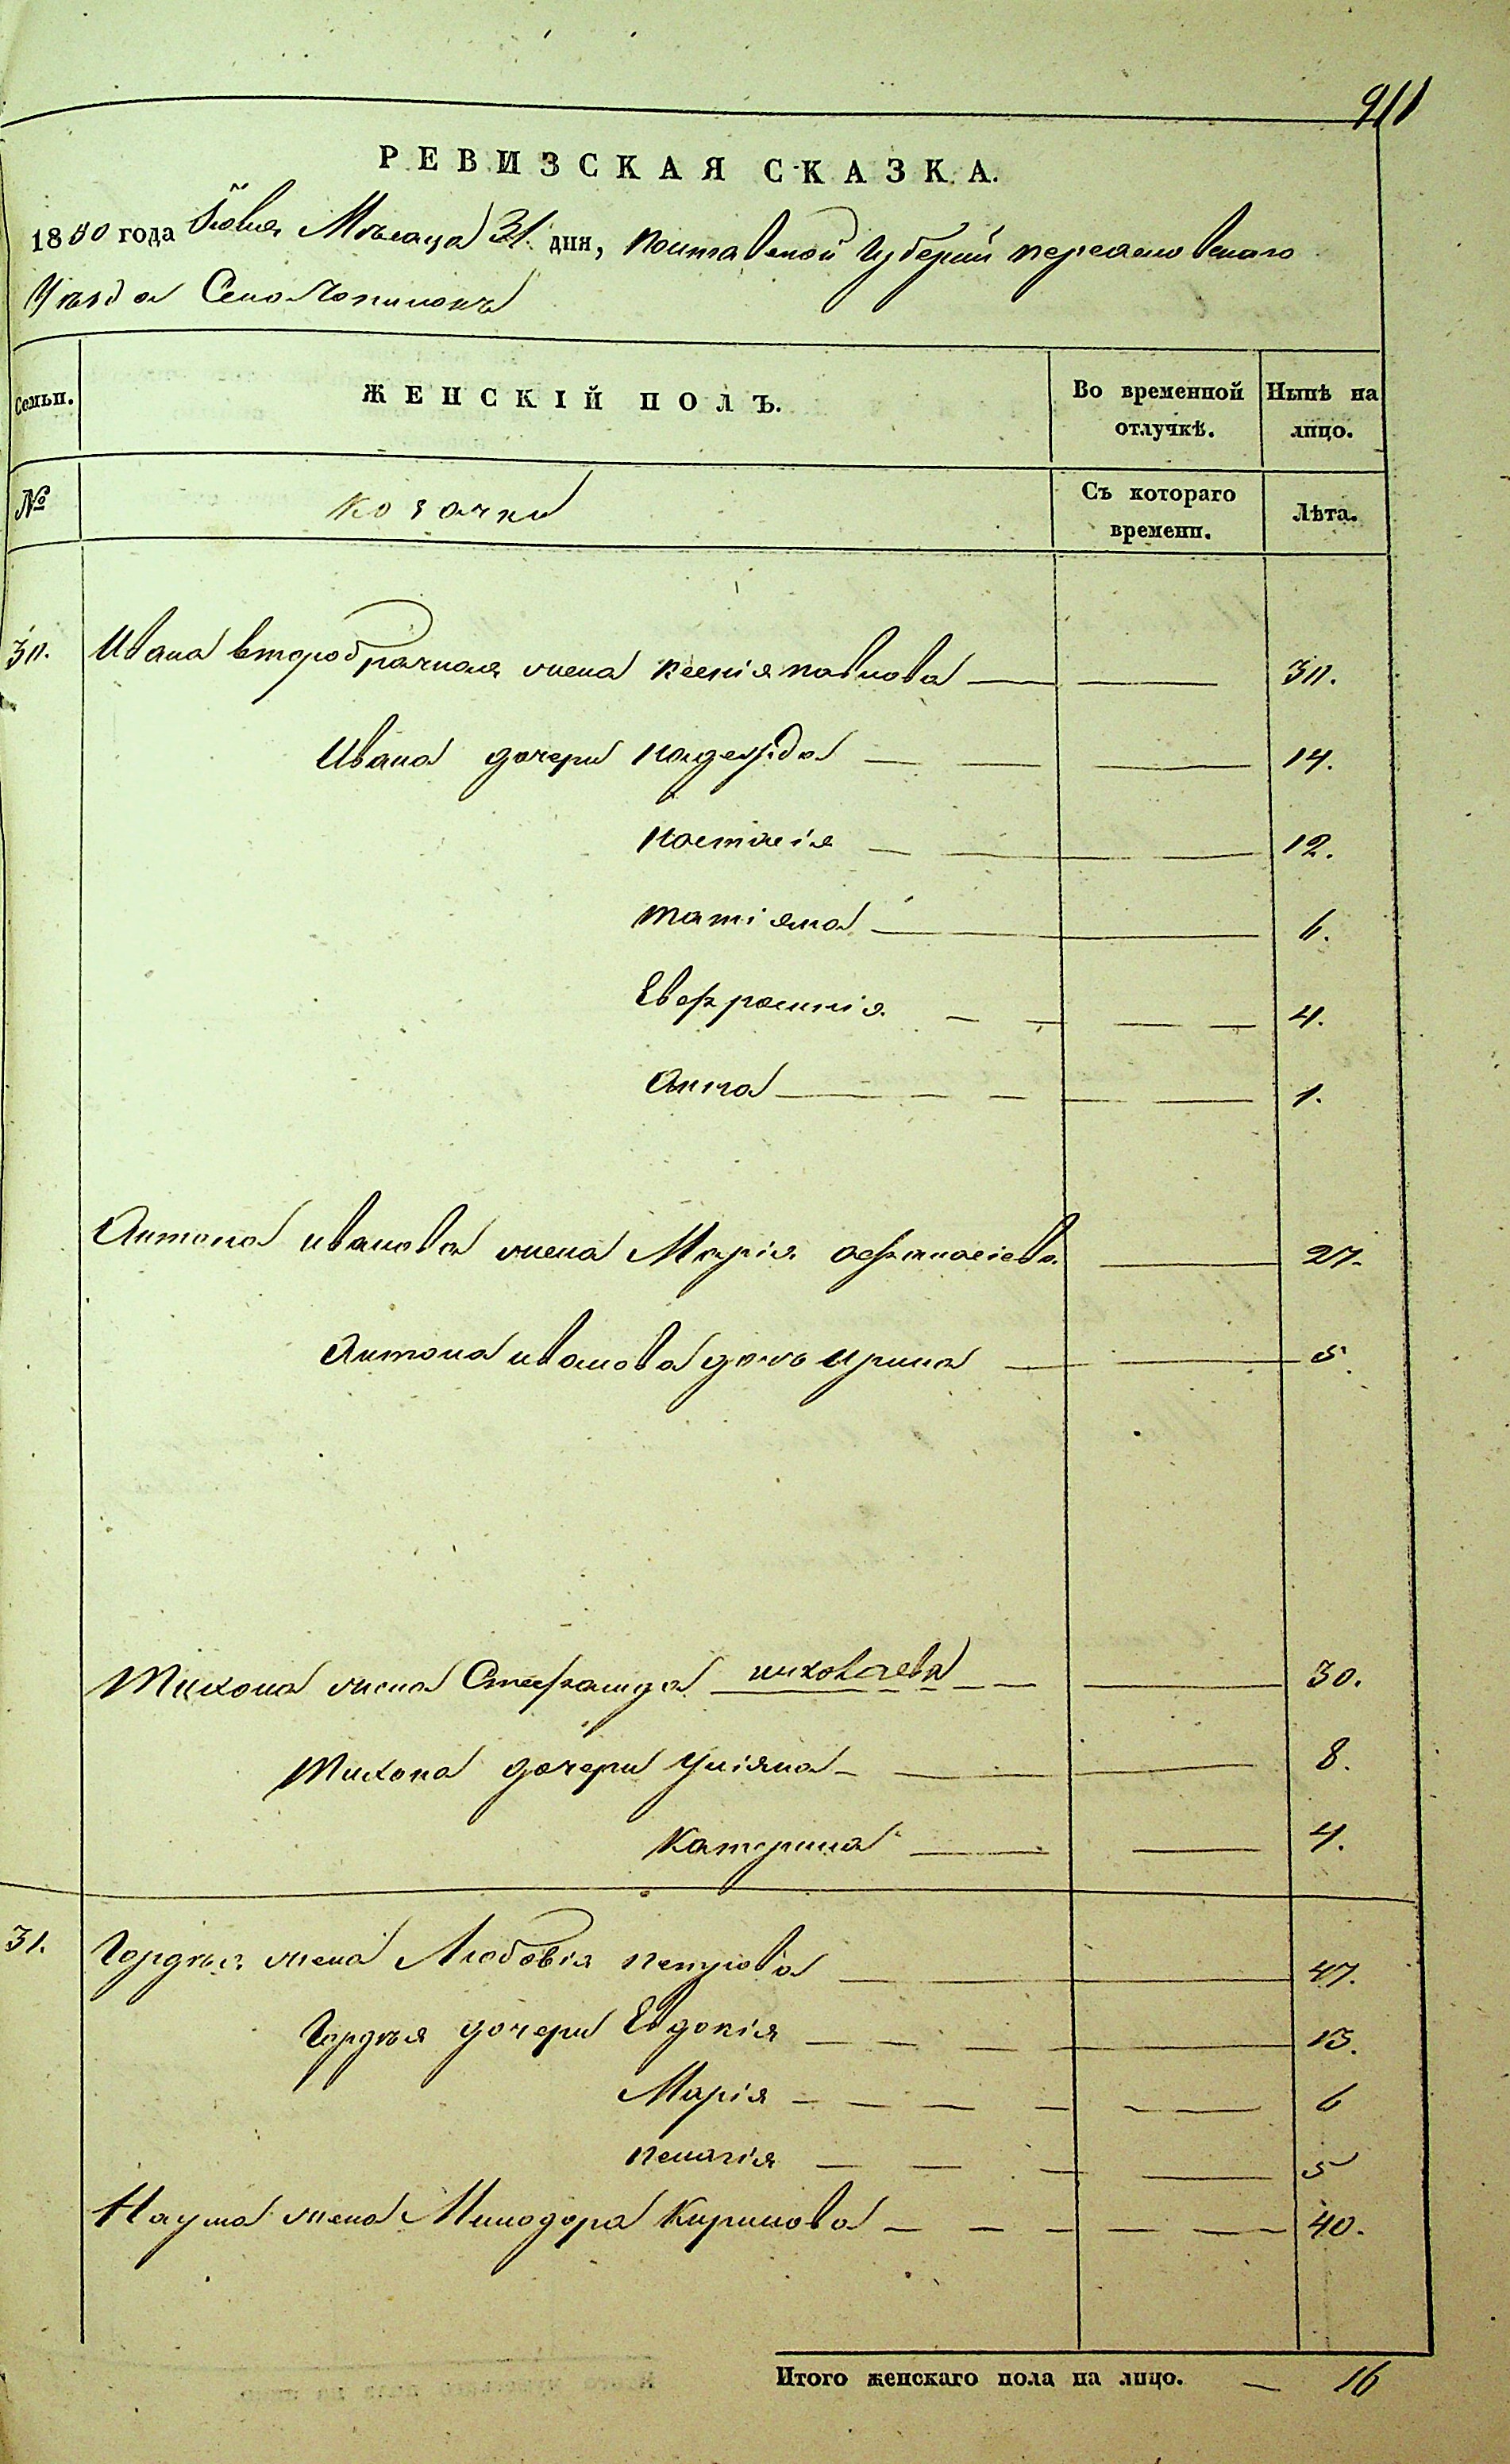 911
РЕВИЗСКАЯ СКАЗКА.
1850 года Іюля Мѣсяца 31. дня, Полтавской Губерніи переяславскаго
Уѣзда Село Лепляви
Семьи. ЖЕНСКІЙ ПОЛЪ. Во временной отлучкѣ. Нынѣ на лицо.
№ козачки Съ котораго времени. Лѣта.
30. Ивана второбрачная жена ксенія павлова 30.
Ивана дочери надежда 14.
настасія 12.
татіяна 6.
Евфросинія 4.
анна 1.
Антона иванова жена Марія афанасіева 27.
Антона иванова дочь ирина 5.
Тихона жена Степанида николаева 30.
Тихона дочери уліяна 8.
Катерина 4.
31. Гордѣя жена Любовія петрова 47.
Гордѣя дочери Евдокія 13.
Марія 6
пелагія 5
Наума жена Минодора Кирилова 40.
Итого женскаго пола на лицо. 16